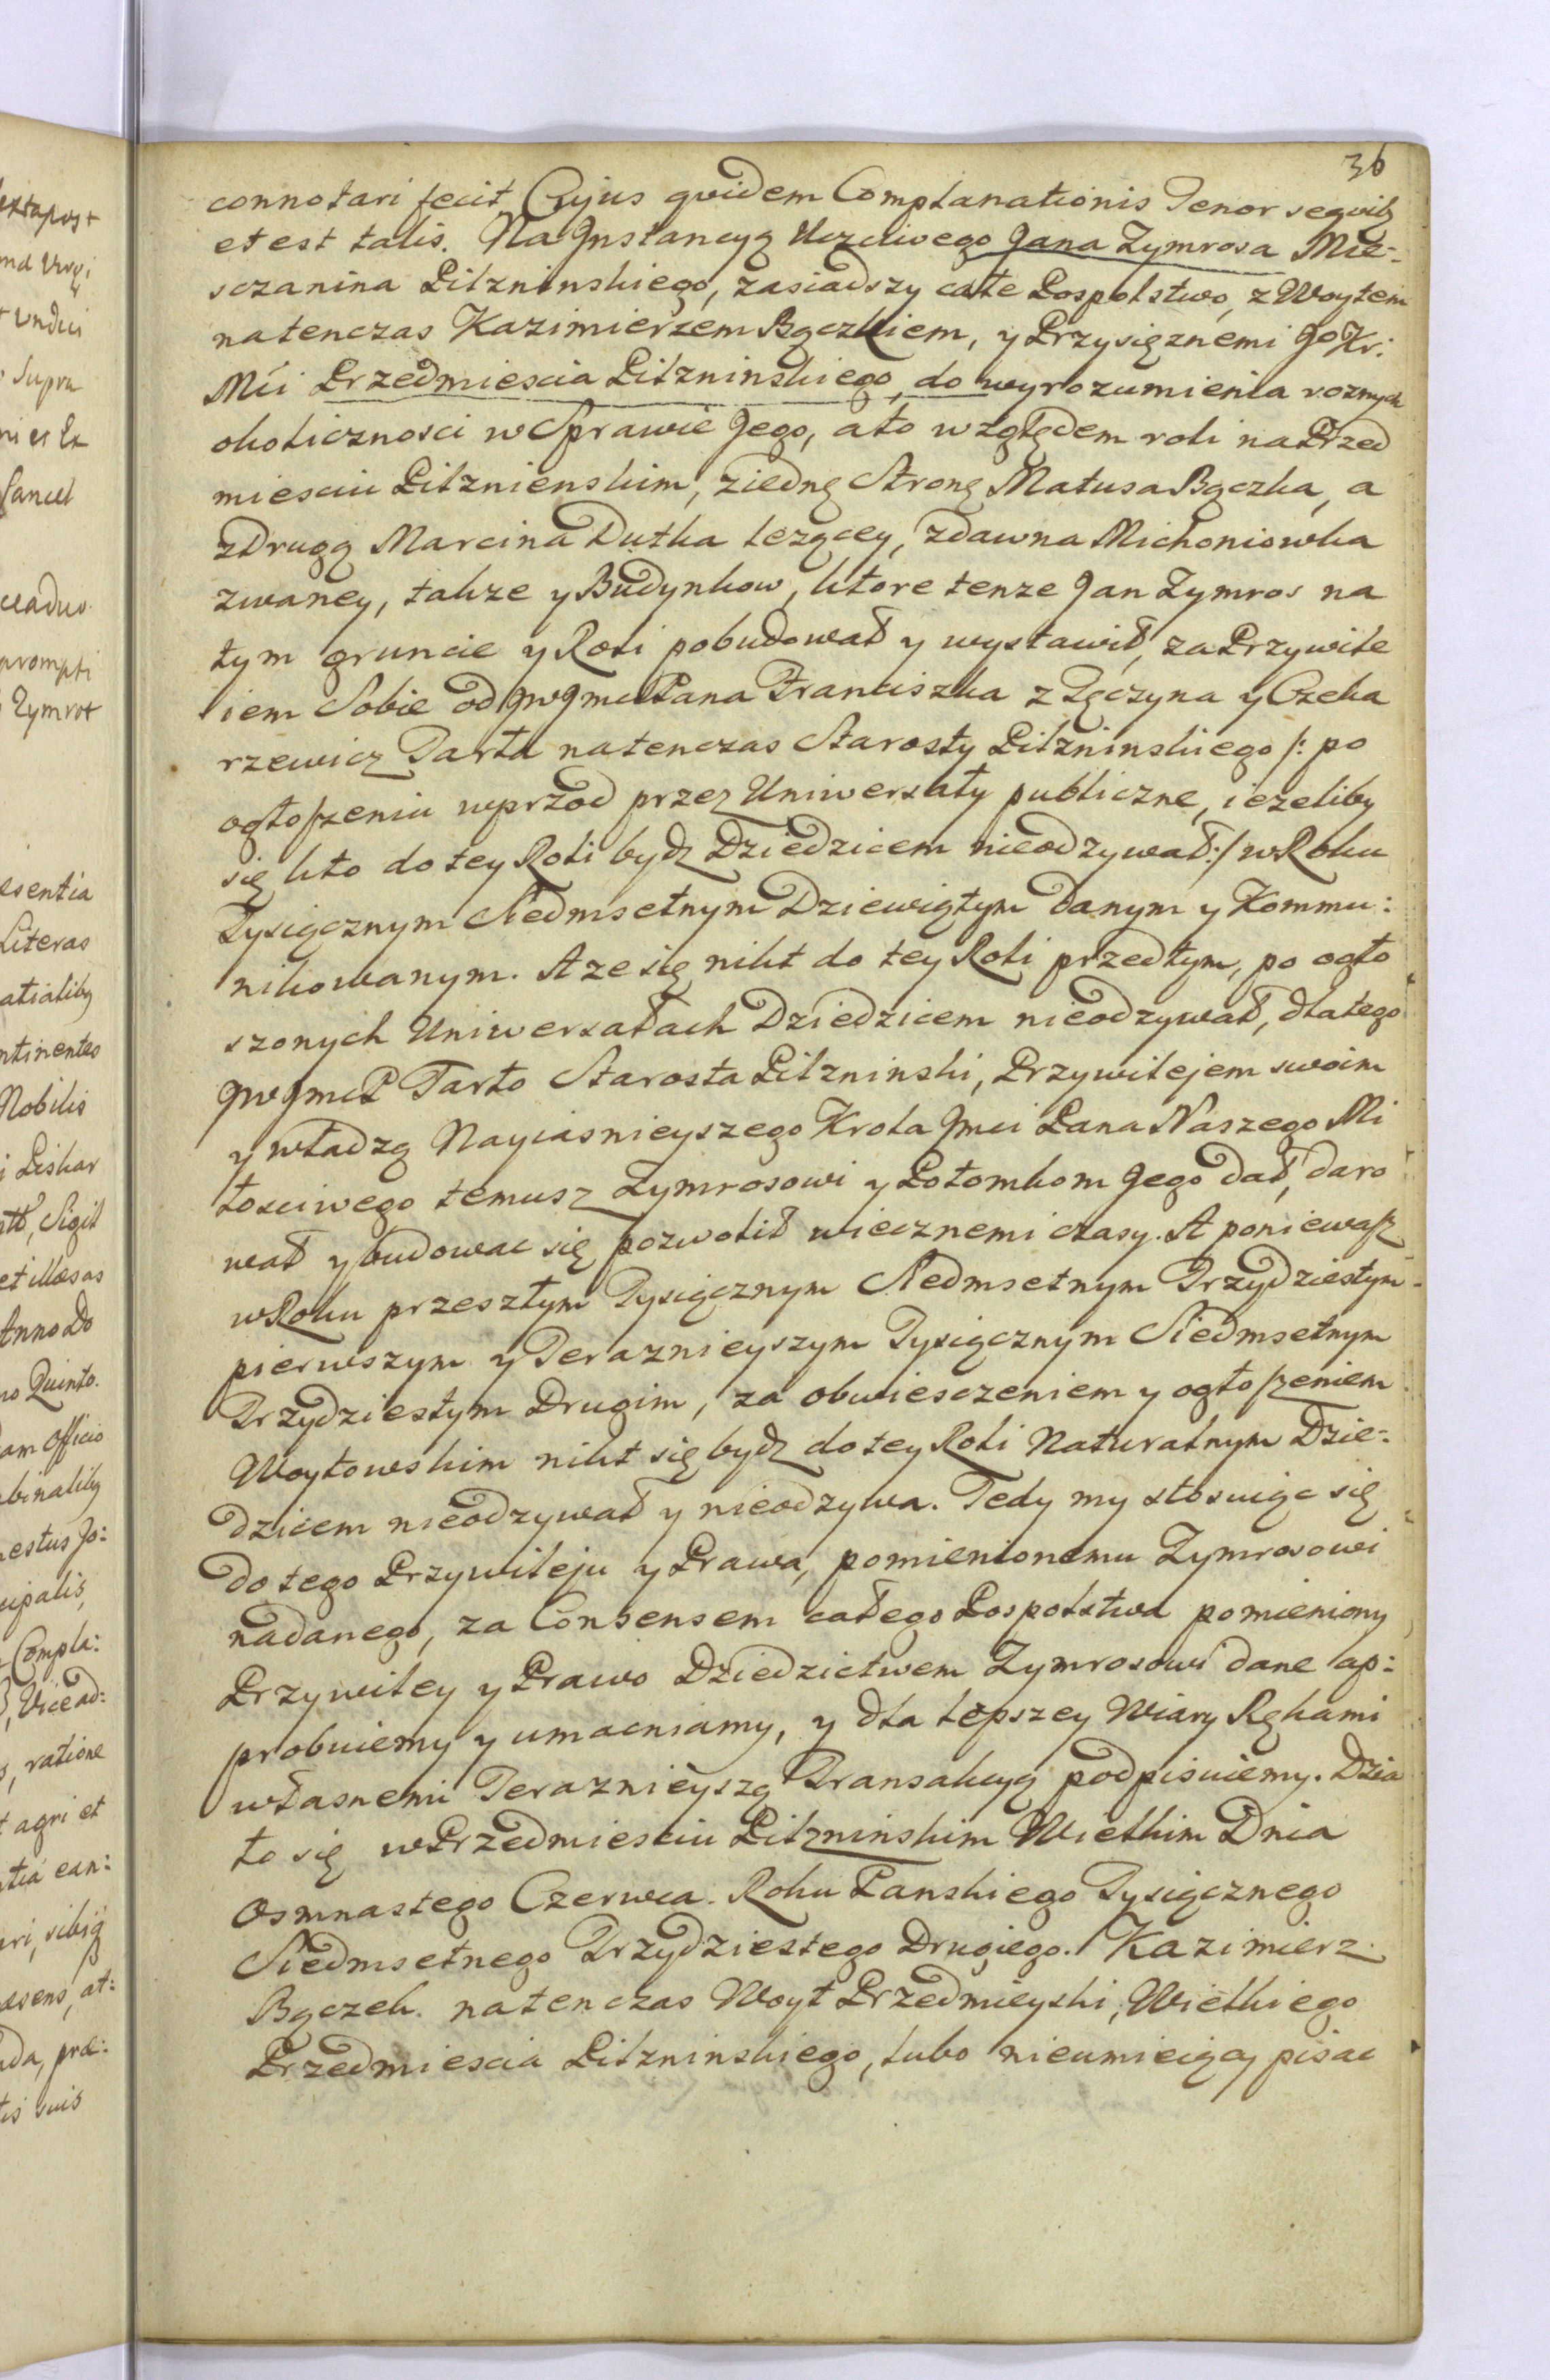 36
connotari fecit Cujus quidem Complanationis Tenor seqvitz
et est talis. Na Jnstancyą Uczciwego Jana Zymrosa Mie-
sczanina Pilzninskiego, zasiadszy całe Pospolstwo, z Woytem
natenczas Kazimierzem Bączkiem, y Przysięznemi Jo Kr:
Mci Przedmiescia Pilzninskiego, do wyrozumienia roznych
okolicznosci w Sprawie Jego, a to względem roli na Przed
miesciu Pilznienskim, z iednę Stronę Matusa Bączka, a
z Drugą Marcina Dutka lezącey, zdawna Michoniowka
zwaney, takze y Budynkow, ktore tenze Jan Zymros na
tym gruncie y Roli pobudował y wystawił, za Przywile
iem Sobie od JWJmci Pana Franciszka z Tęczyna y Czeka
rzewicz Tarła natenczas Starosty Pilzninskiego /: po
ogłoszeniu wprzod przez Uniwersały publiczne, iezeliby
się kto do tey Roli bydz Dziedzicem nieodzywał :/ w Roku
Tysiącznym Siedmsetnym Dziewiątym danym y Kommu:
nikowanym. A ze się nikt do tey Roli przedtym, po ogło
szonych Uniwersałach Dziedzicem nieodzywał, dlatego
JWJmcP Tarło Starosta Pilzninski, Przywilejem swoim
y władzą Nayiasnieyszego Krola Jmci Pana Naszego Mi
łosciwego temusz Zymrosowi y Potomkom Jego dał, daro
wał y budowac się pozwolił wiecznemi czasy. A poniewasz
w Roku przeszłym Tysiącznym Siedmsetnym Trzydziestym
pierwszym y Teraznieyszym Tysiącznym Siedmsetnym
Trzydziestym Drugim, za obwiesczeniem y ogłoszeniem
Woytowskim nikt się bydz do tey Roli Naturalnym Dzie-
dzicem nieodzywał y nieodzywa. Tedy my stosuiąc się
do tego Przywileju y Prawa, pomienionemu Zymrosowi
nadanego, za Consensem całego Pospolstwa pomieniony
Przywiley y Prawo Dziedzictwem Zymrosowi dane ap:
probuiemy y umacniamy, y dla lepszey Wiary Rękami
własnemi Teraznieyszą Transakcyą podpisuiemy. Dzia
ło się w Przedmiesciu Pilzninskim Wielkim Dnia
Osmnastego Czerwca. Roku Panskiego Tysiącznego
Siedmsetnego Trzydziestego Drugiego. Kazimierz
Bączek. natenczas Woyt Przedmieyski, Wielkiego
Przedmiescia Pilzninskiego, lubo nieumieiący pisac